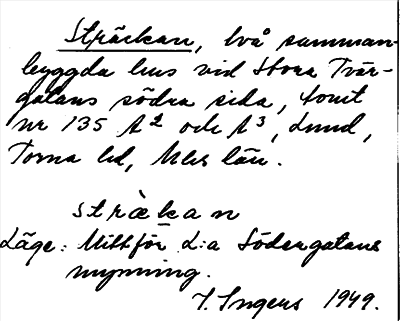 Sträckan, två samman-
byggda hus vid Stora Tvär-
gatans södra sida, tomt
nr 135 A² och A³, Lund,
Torna hd, Mlhs län.
strækan
Läge: Mittför L:a Södergatans
mynning.
I. Ingers 1949.